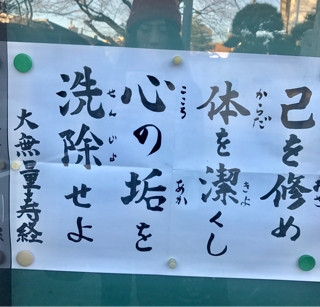 己を修め
体を潔くし
からだ
きよ
心の垢を
こころ
あか
洗除せよ
せんじよ
大無量寿経